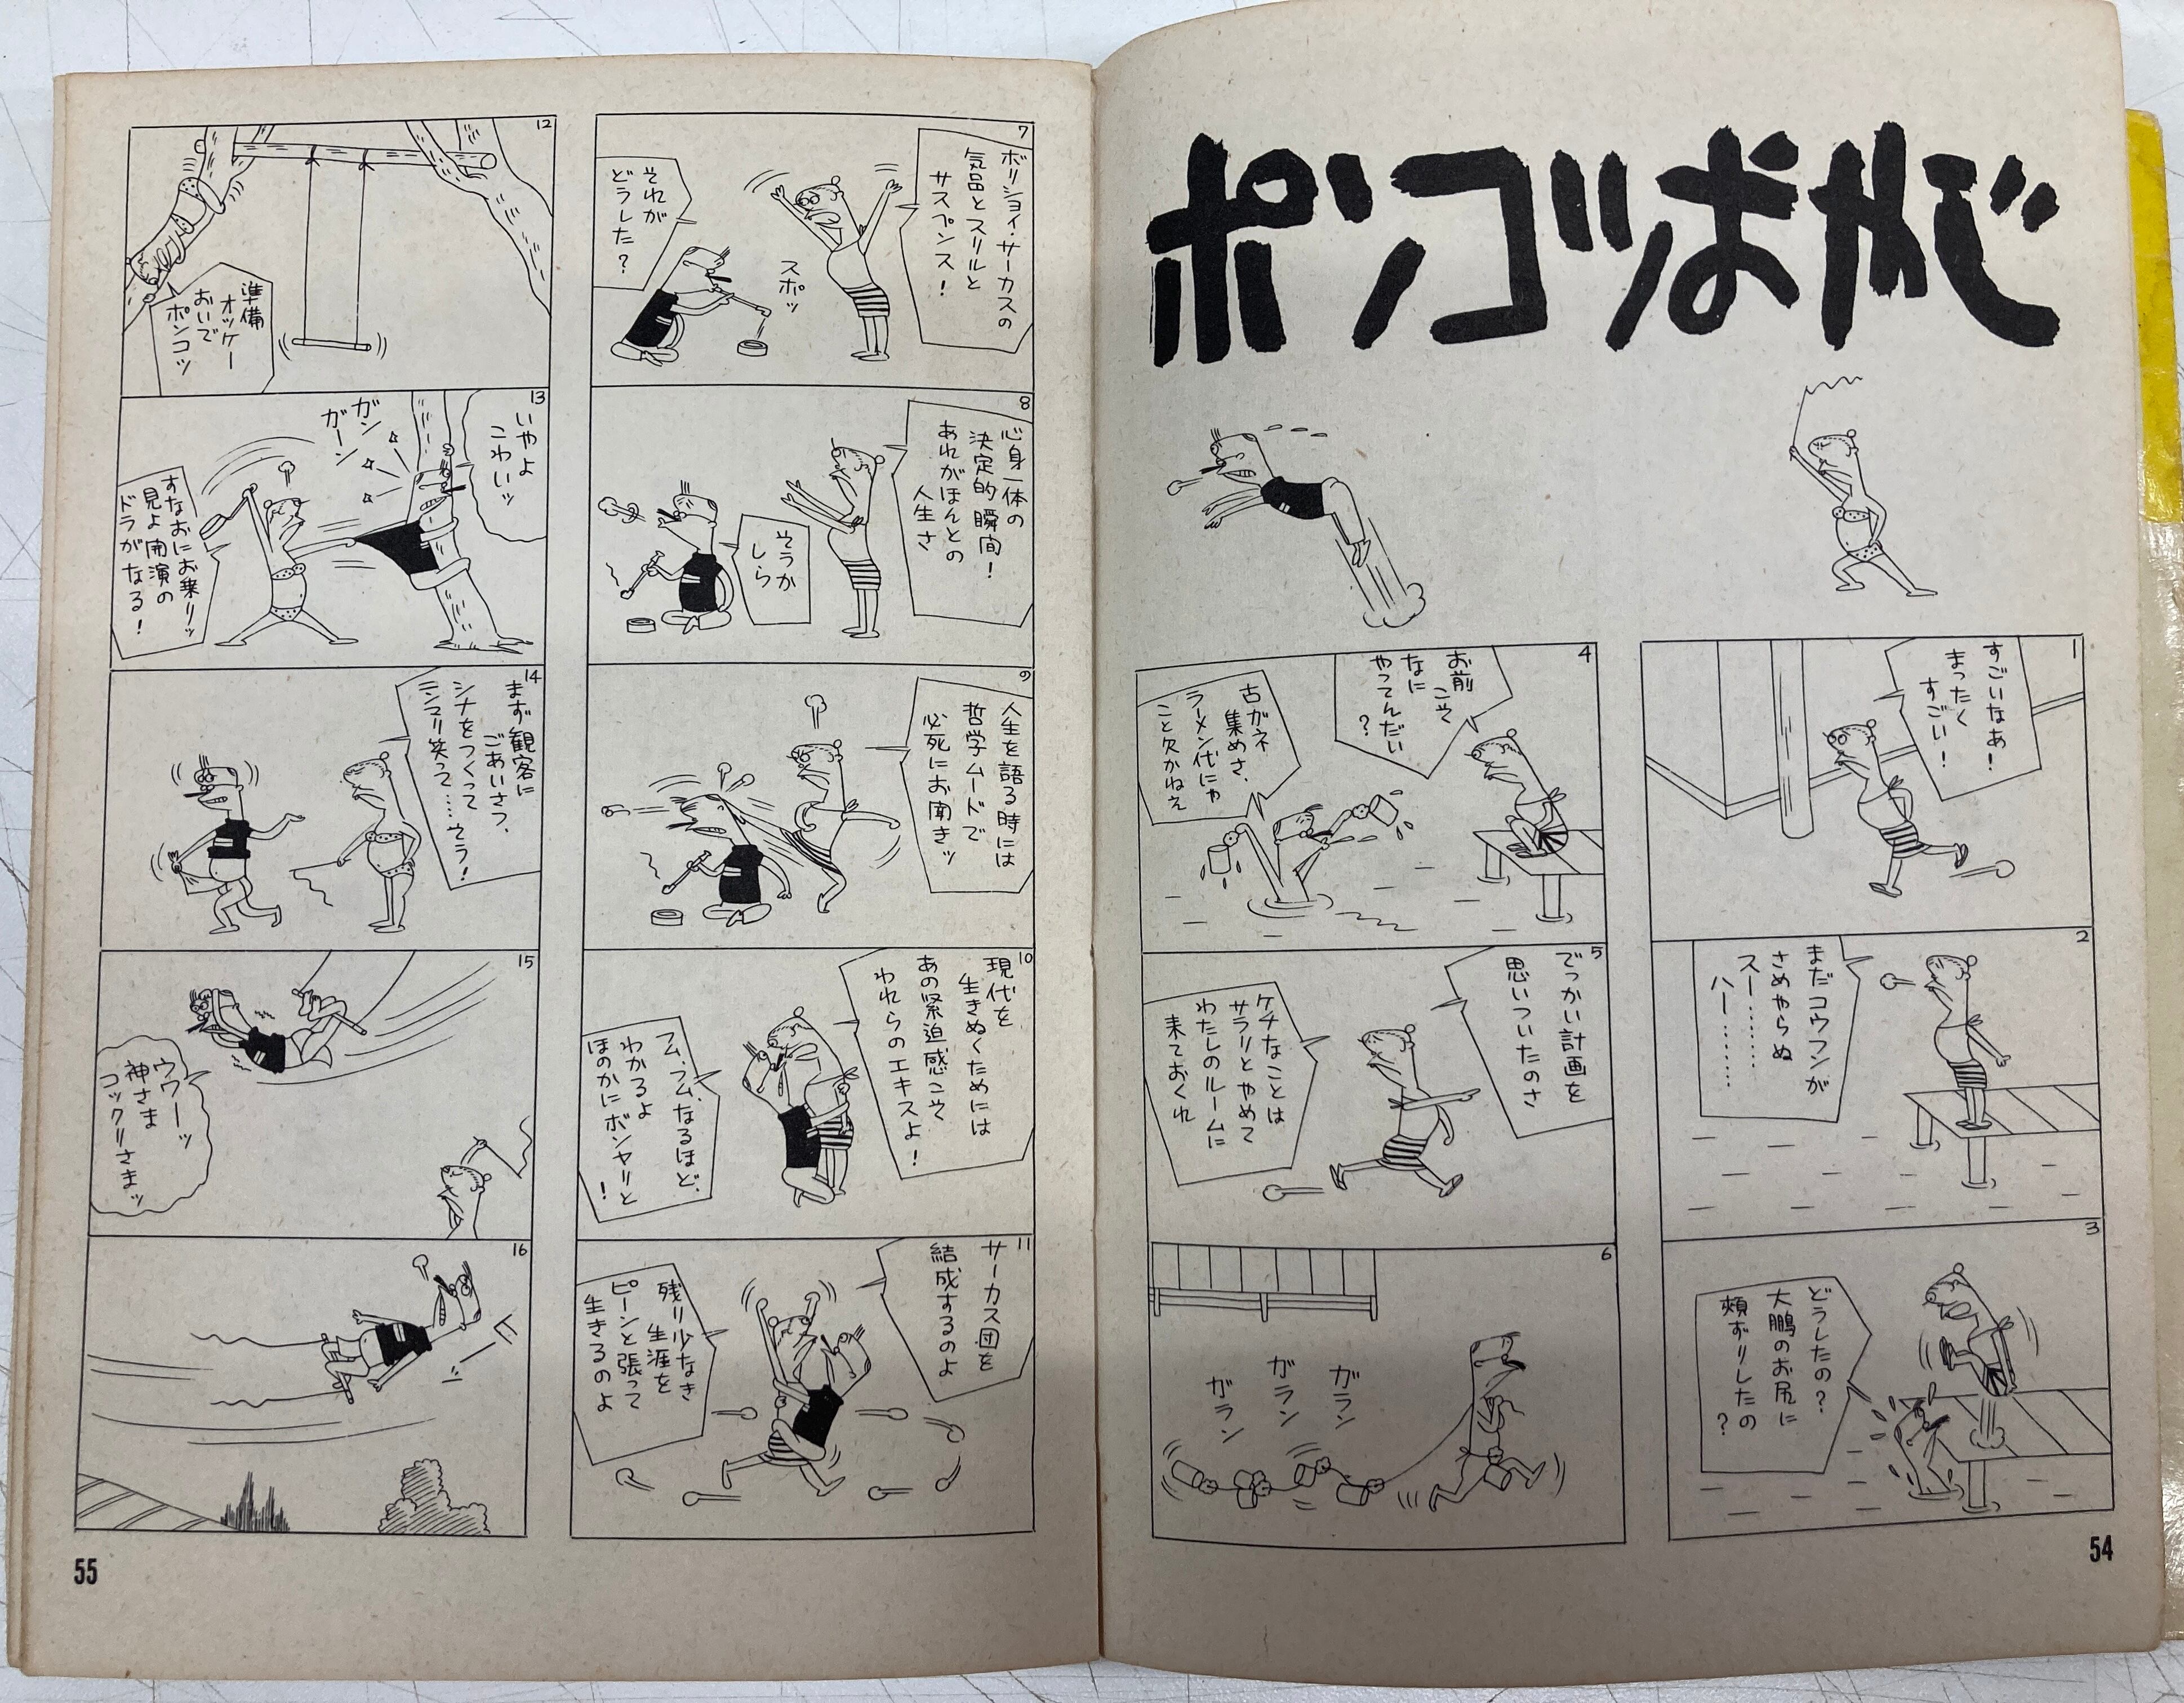 ポンコツおやじ
1
すごいなあ！
まったく
すごい！
2
まだコウフンが
さめやらぬ
スー………
ハー………
3
どうしたの？
大鵬のお尻に
頬ずりしたの
？
4
お前
こそ
なに
やってんだい
？
古ガネ
集めさ、
ラーメン代にゃ
こと欠かねえ
5
でっかい計画を
思いついたのさ
ケチなことは
サラリとやめて
わたしのルームに
来ておくれ
6
ガラン
ガラン
ガラン
54
7
ボリショイ・サーカスの
気品とスリルと
サスペンス！
スポッ
それが
どうした？
8
心身一体の
決定的瞬間！
あれがほんとの
人生さ
そうか
しら
9
人生を語る時には
哲学ムードで
必死にお聞きッ
10
現代を
生きぬくためには
あの緊迫感こそ
われらのエキスよ！
フム、フム、なるほど、
わかるよ
ほのかにボンヤリと
！
11
サーカス団を
結成するのよ
残り少なき
生涯を
ピーンと張って
生きるのよ
12
準備
オッケー
おいで
ポンコツ
13
いやよ
こわいッ
ガン
ガーン
すなおにお乗りッ
見よ開演の
ドラがなる！
14
まず観客に
ごあいさつ、
シナをつくって
ニンマリ笑って……そう！
15
ウウーッ
神さま
コックリさまッ
16
55